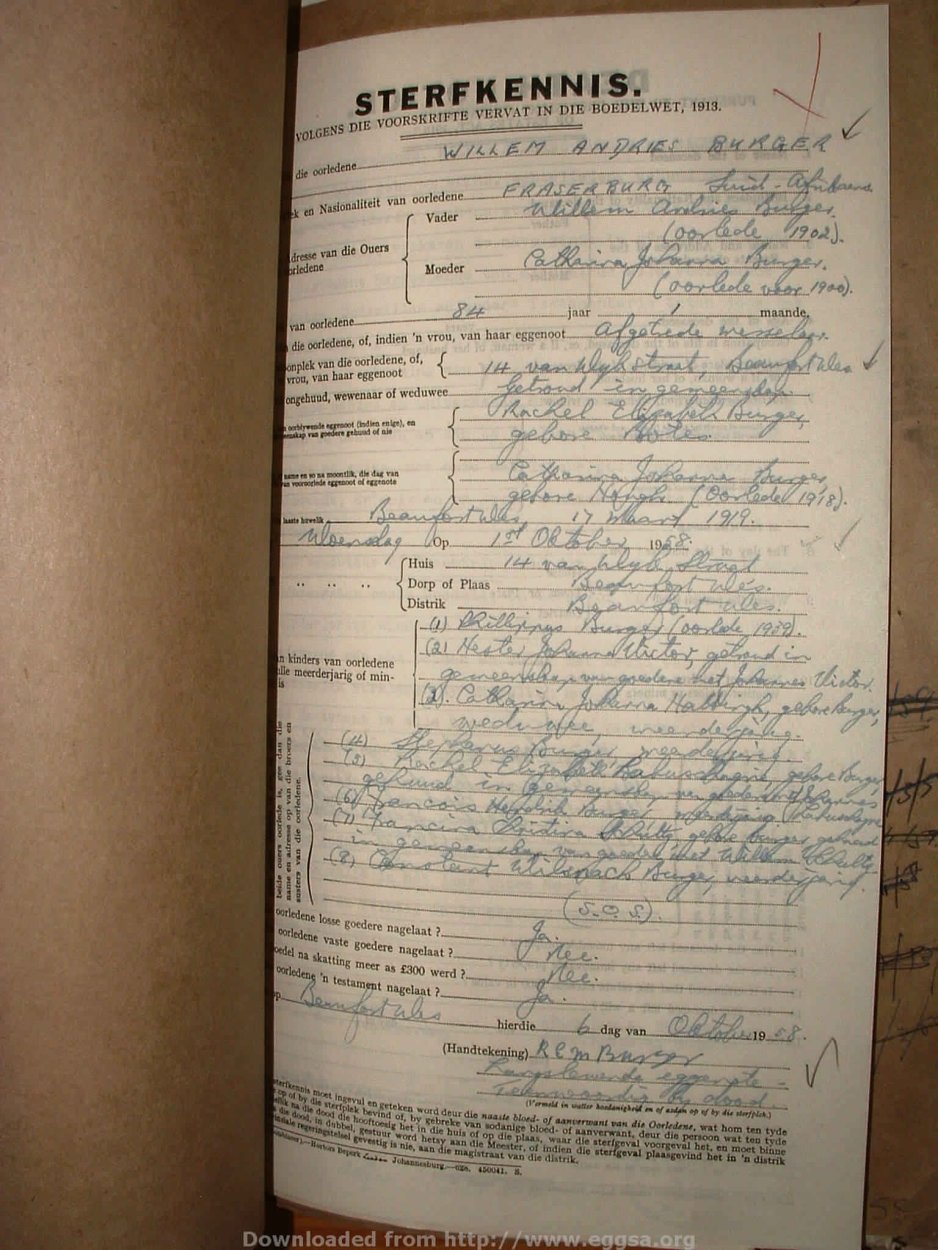 STERFKENNIS.
VOLGENS DIE VOORSKRIFTE VERVAT IN DIE BOEDELWET, 1913.
die oorledene WILLEM ANDRIES BURGER
en Nasionaliteit van oorledene FRASERBURG Suid-Afrikaans
Vader Willem Andries Burger.
(oorlede 1902).
dresse van die Ouers
orledene
Moeder Catharina Johanna Burger.
(oorlede voor 1900).
van oorledene 84 jaar 1 maande,
die oorledene, of, indien 'n vrou, van haar eggenoot Afgetrede
onplek van die oorledene, of,
vrou, van haar eggenoot 14 van Wyk straat, Beaufort Wes
ongehuud, wewenaar of weduwee Getroud in gemeenskap.
oorblywende eggenoot (indien enige), en
enskap van goedere gehuud of nie
Rachel Elizabeth Burger,
gebore
name en so na moontlik, die dag van
van vooroorlede eggenoot of eggenote
Catharina Johanna Burger,
gebore (Oorlede 1918).
laaste huwelik Beaufort Wes 17 Maart 1919.
Woensdag Op 1st Oktober 1958.
Huis 14 van Wyk Straat
Dorp of Plaas Beaufort Wes.
Distrik Beaufort Wes.
(1) Phillippus Burger (oorlede 1939).
(2) Hester Johanna Victor, getroud in
gemeenskap van goedere met Johannes Victor.
n kinders van oorledene
lle meerderjarig of min-
is
(3). Catharina Johanna Hattingh, gebore Burger,
weduwee, meerderjarig.
(4) Stephanus Burger, meerderjarig.
(5) Rachel Elizabeth Labuschagne, gebore Burger,
gehuud in gemeenskap van goedere met Johannes Labuschagne
(6) Francois Hendrik Burger, meerderjarig
(7) Francina Christina Schultz, gebore Burger, gehuud
in gemeenskap van goedere met Willem Schultz
(8) Constant Wilsnach Burger, meerderjarig.
beide ouers oorlede is, gee dan die
name en adresse op van die broers en
susters van die oorledene.
(S.O.S).
oorledene losse goedere nagelaat ? Ja.
oorledene vaste goedere nagelaat ? Nee.
oedel na skatting meer as £300 werd ? Nee.
oorledene 'n testament nagelaat ? Ja.
op Beaufort Wes hierdie 6 dag van Oktober 1958.
(Handtekening) R E M Burger
Langslewende eggenote -
Teenwoordig by dood.
(Vermeld in watter hoedanigheid en of aldan op of by die sterfplek.)
sterfkennis moet ingevul en geteken word deur die naaste bloed- of aanverwant van die Oorledene, wat hom ten tyde
op of by die sterfplek bevind of, by gebreke van sodanige bloed- of aanverwant, deur die persoon wat ten tyde
na die dood die hooftoesig het in die huis of op die plaas, waar die sterfgeval voorgeval het, en moet binne
die dood, in dubbel, gestuur word hetsy aan die Meester, of indien die sterfgeval plaasgevind het in 'n distrik
regeringstelsel gevestig is nie, aan die magistraat van die distrik.
Johannesburg. 450041. S.
Downloaded from http://www.eggsa.org